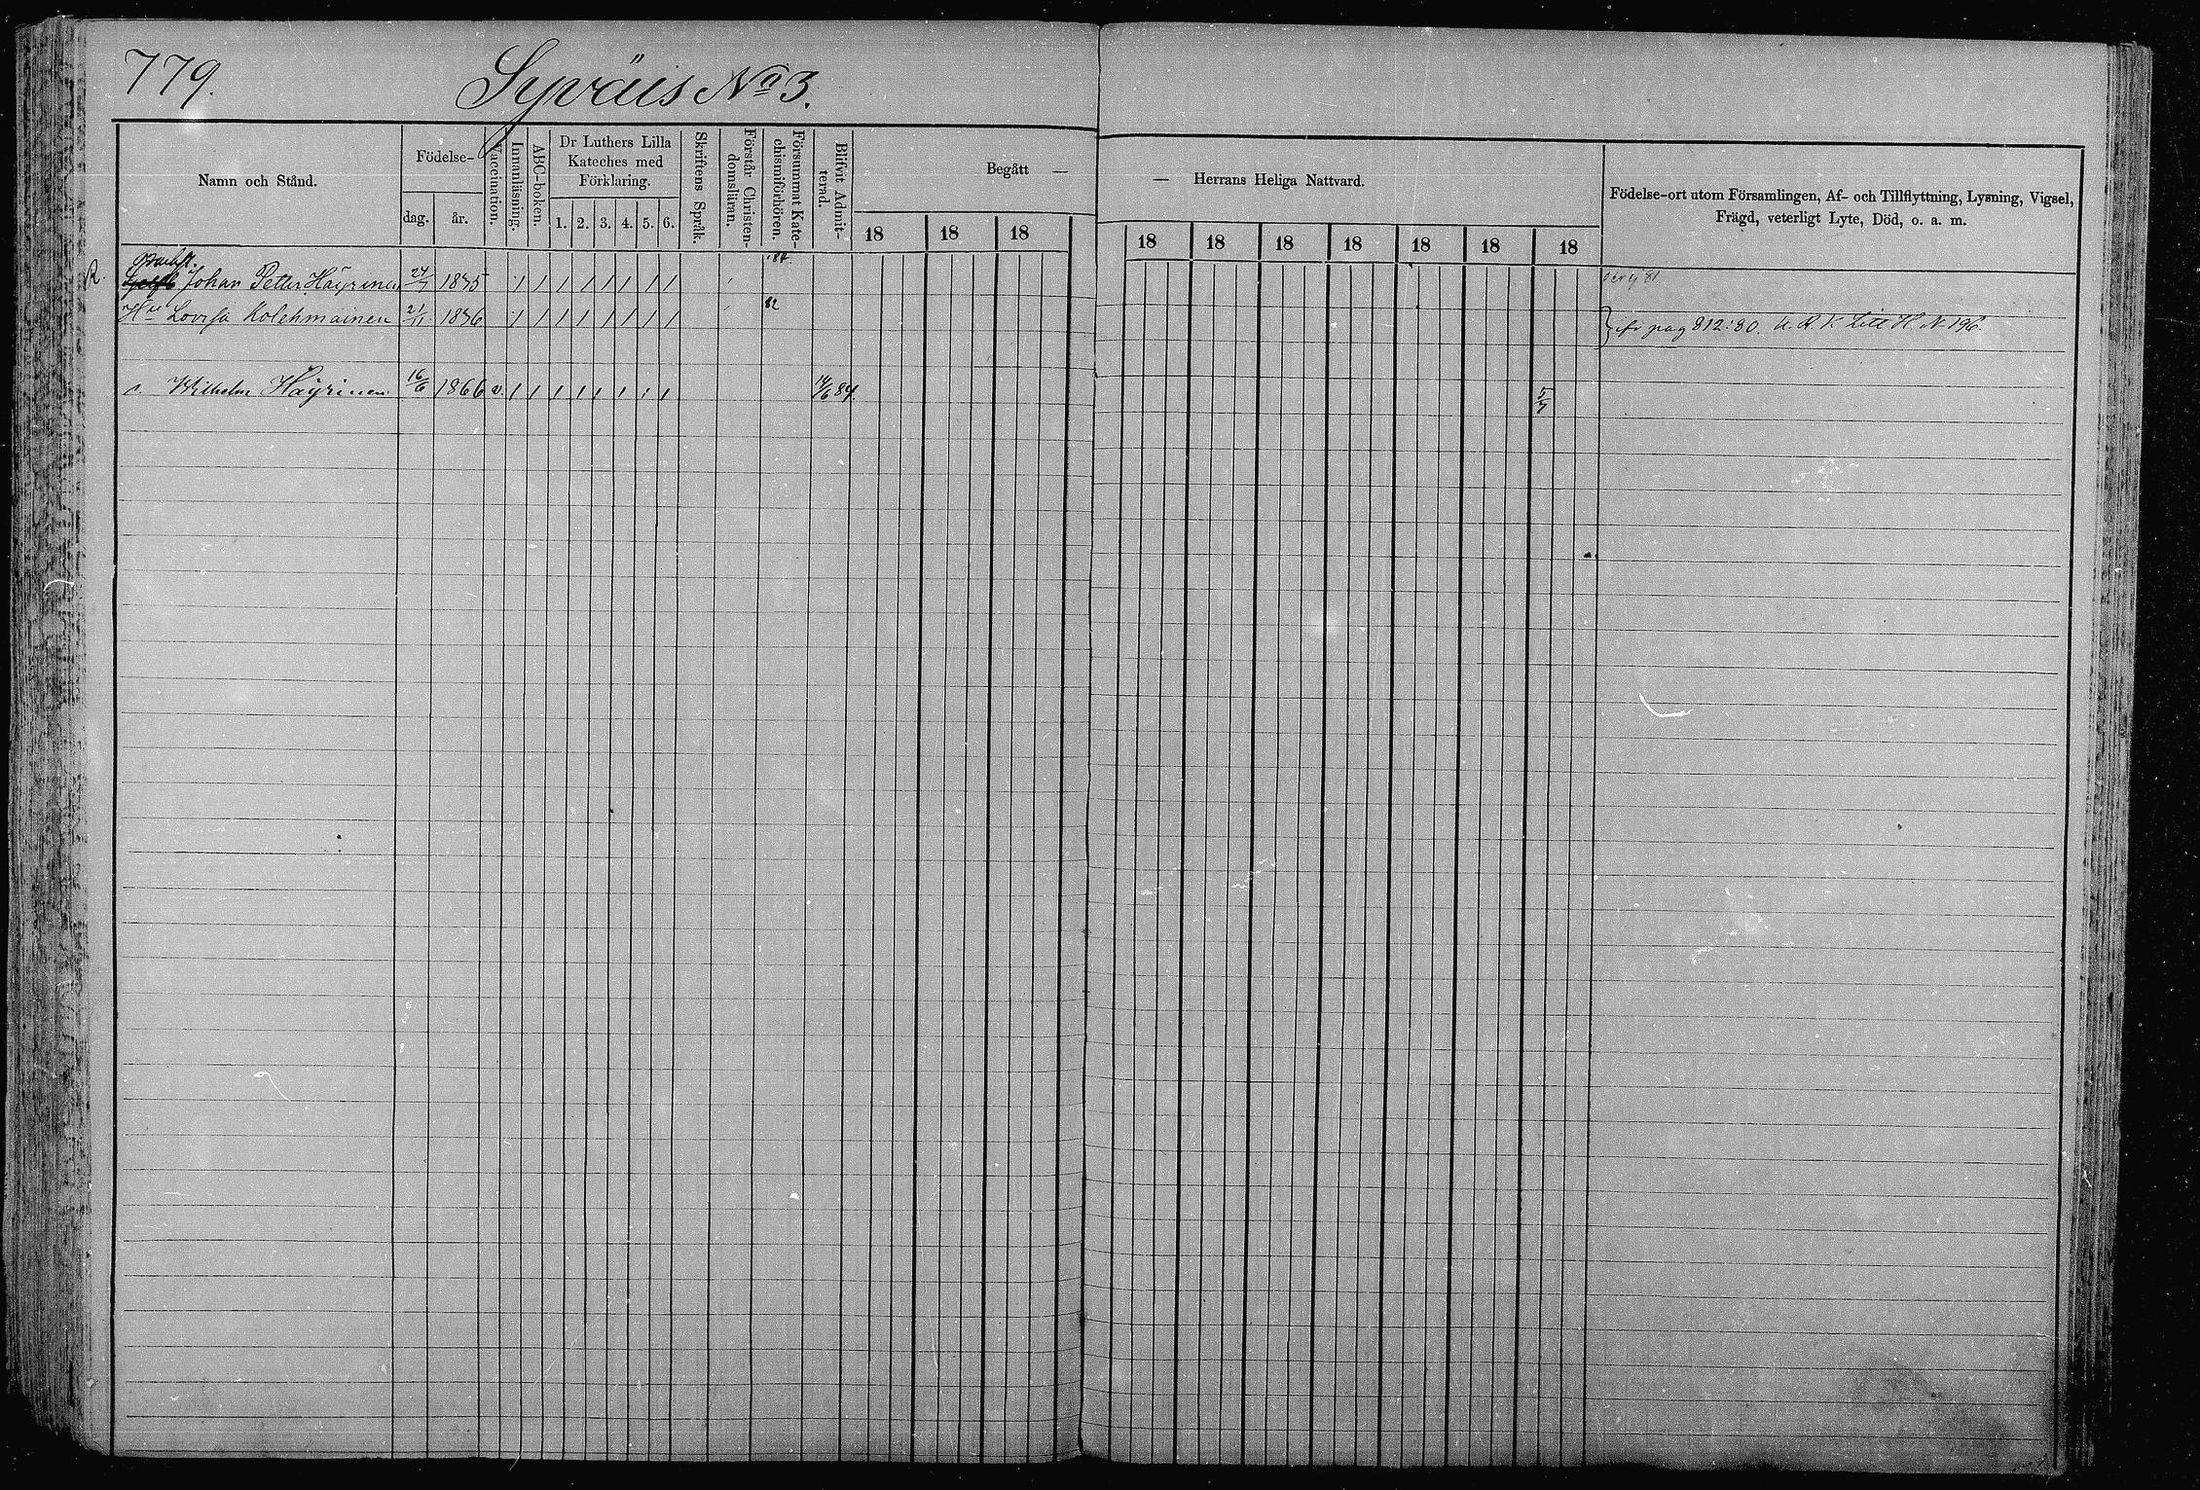 779. Syväis No 3.
Namn och Stånd.
Födelse-
dag.
år.
Vaccination.
Innanläsning.
ABC-boken.
Dr Luthers Lilla
Kateches med
Förklaring.
1. 2. 3. 4. 5. 6.
Skriftens Språk.
Förstår Christen-
domsläran.
Försummat Kate-
chismiförhören.
Blifvit Admit-
terad.
Begått —
— Herrans Heliga Nattvard.
18 18 18 18 18 18 18 18 18 18
Födelse-ort utom Församlingen, Af- och Tillflyttning, Lysning, Vigsel,
Frägd, veterligt Lyte, Död, o. a. m.
R. Johan Petter Häyrinen 24/7 / / / / / / / / 81
Hu Lovisa Kolehmainen 21/11 / / / / / / / / 82 pag 812:80. Litt H N 196.
Wilhelm Häyrinen 16/6 1866 v. / / / / / / / / 14/6 84. 5/7